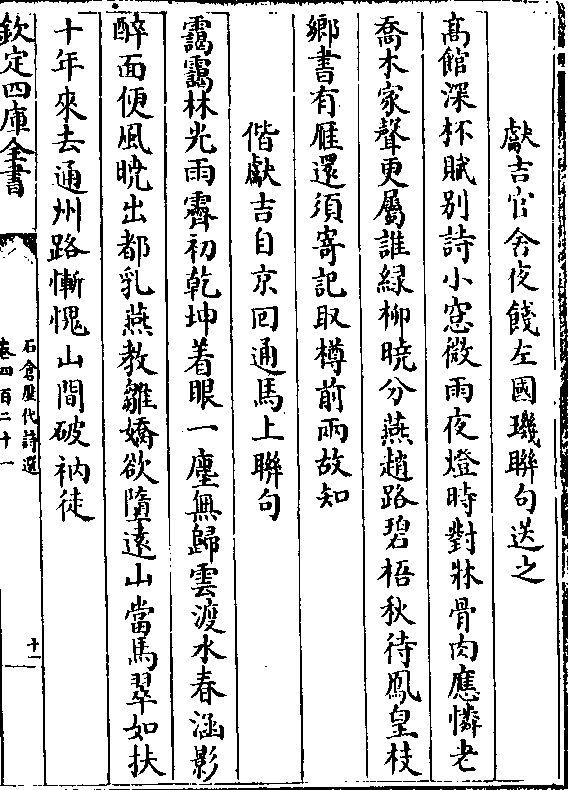 獻吉官舍夜餞左國璣聯句送之
高館深杯賦别詩小窓微雨夜燈時對牀骨肉應憐老
喬木家聲更屬誰緑柳曉分燕趙路碧梧秋待鳳皇枝
鄉書有雁還須寄記取樽前兩故知
偕獻吉自京回通馬上聯句
靄靄林光雨霽初乾坤着眼一塵無歸雲渡水春涵影
醉面便風晩出都乳燕教雛嬌欲墮遠山當馬翠如扶
十年來去通州路慚愧山間破衲徒
欽定四庫全書
石倉歷代詩選
卷四百二十一
十一